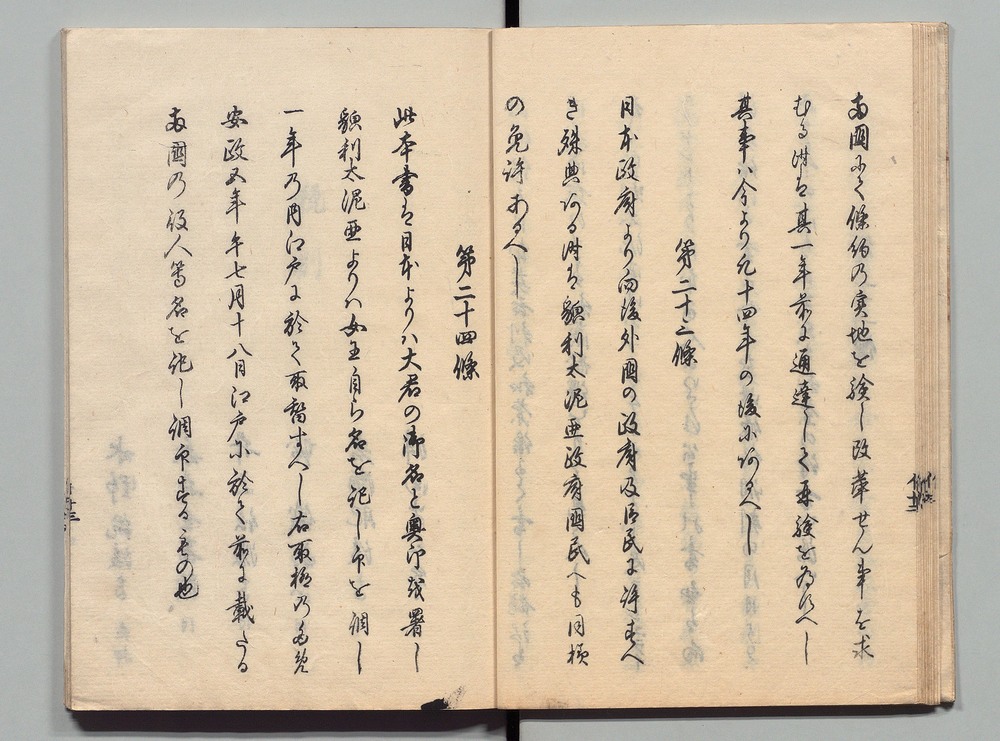 両國にて條約の実地を験し改革せん事を求
むる時は其一年前に通達して再験を為すへし
其事ハ今より凡十四年の後にあるへし
第二十三條
日本政府より向後外國の政府及臣民に許すへ
き殊典ある時は貌利太泥亜政府國民へも同様
の免許あるへし
第二十四條
此本書は日本よりハ大君の御名と奥印を署し
貌利太泥亜よりハ女王自ら名を記し印を調し
一年の内江戸に於て取替すへし右取極の為
安政五年午七月十八日江戸に於て前に載たる
両國の役人等名を記し調印するもの也